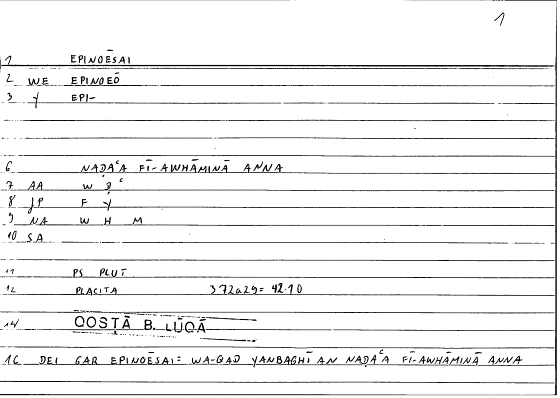 1
1 EPINOĒSAI
2 WE EPINOEŌ
3 Y EPI-
6 NAḌAʿA FĪ-AWHĀMINĀ ANNA
7 AA W Ḍ ʿ
8 JP F Y
9 NA W H M
10 SA
11 PS PLUT
12 PLACITA 372a29= 42.10
14 QOSṬĀ B. LŪQĀ
16 DEI GAR EPINOĒSAI: WA-QAD YANBAGHĪ AN NAḌAʿA FĪ-AWHĀMINĀ ANNA